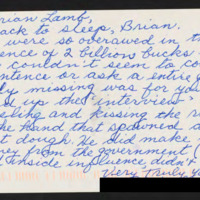 rian Lamb,
ack to sleep, Brian.
were so overawed in th
ence of 2 billion bucks
couldn't seem to co
ntence or ask a entire
ly missing was for yo
d up the "interview"
eeling and kissing the r
he hand that spawned a
t dough. He did make
ey from the government (
Inside influence didn't
Very Truly Yo